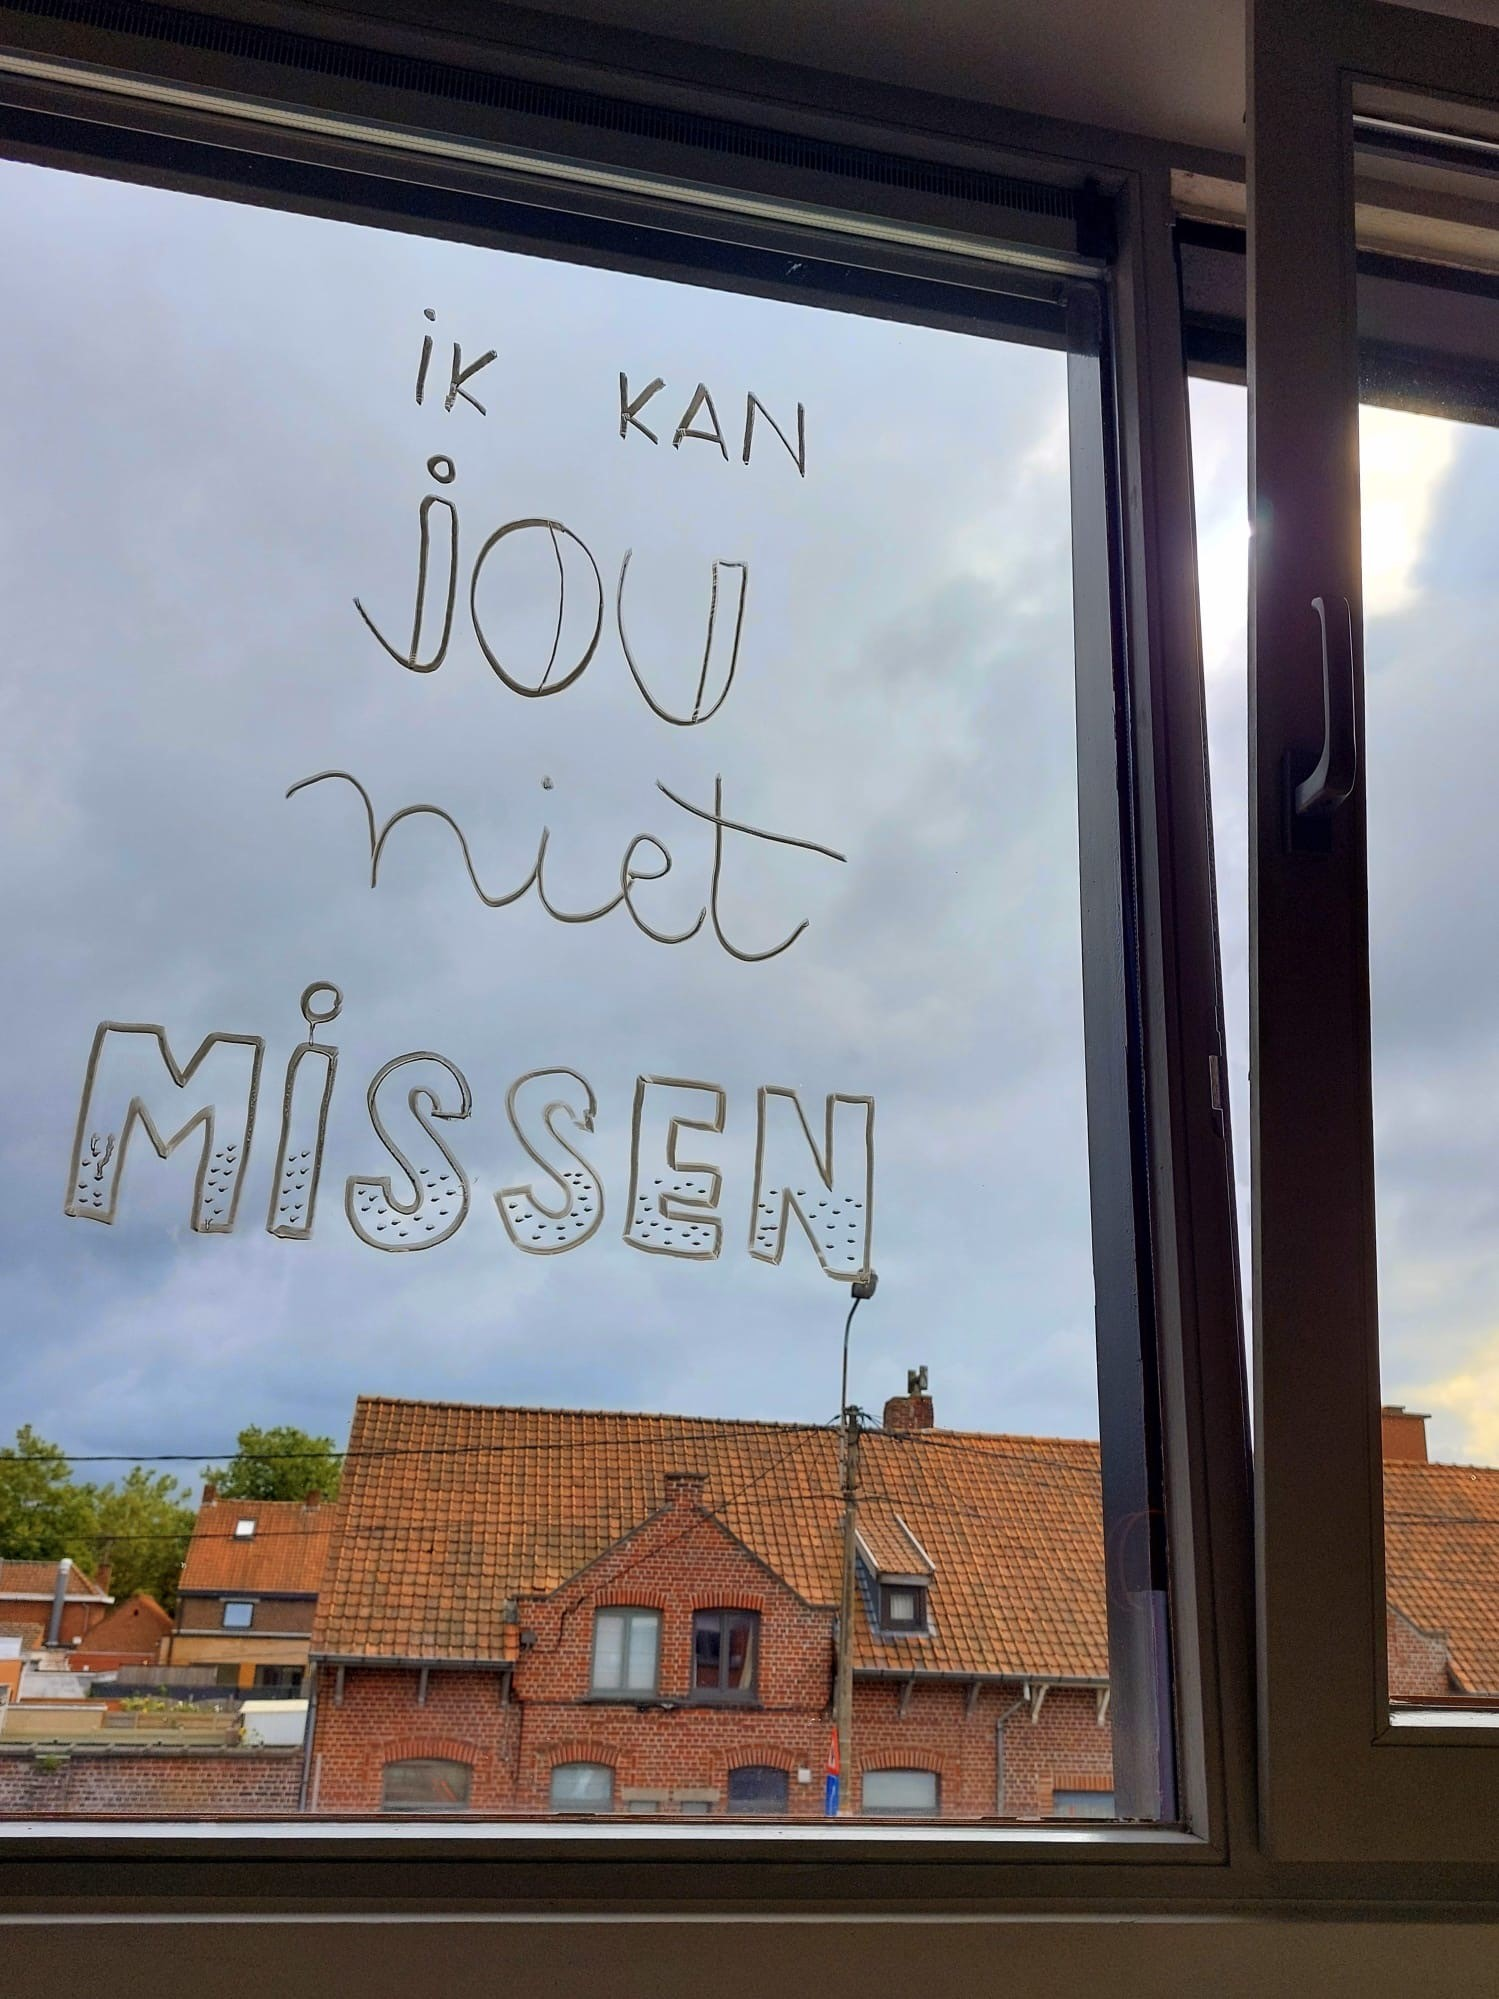 iK KAN
jOU
niet
MiSSEN